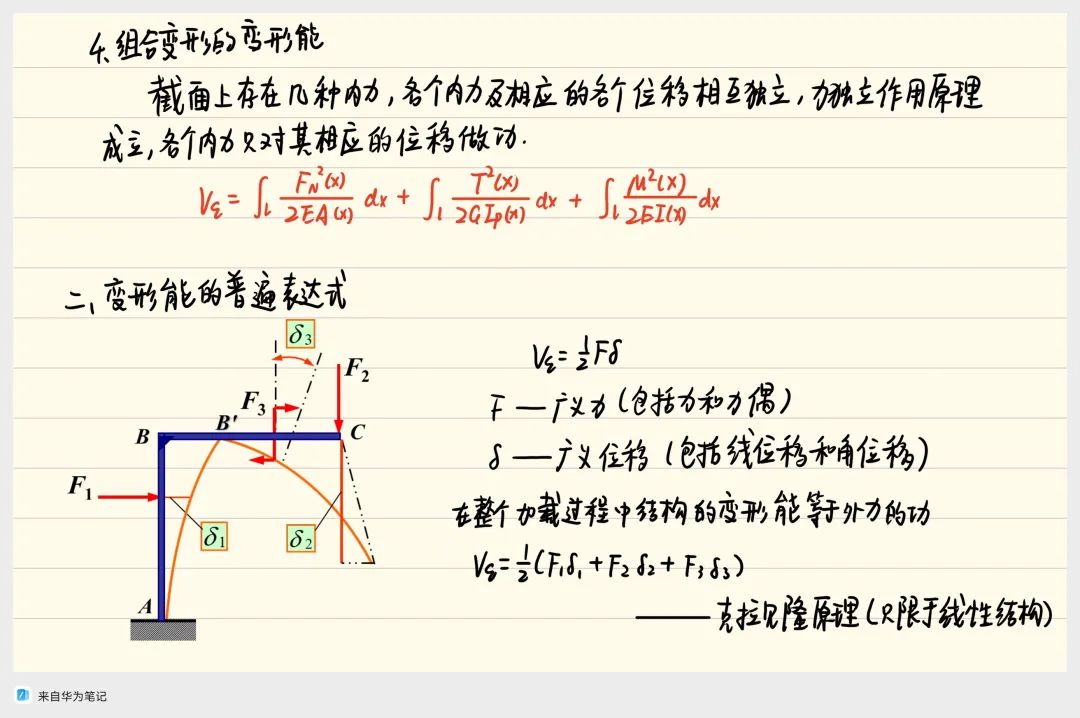 4、组合变形的变形能
截面上存在几种内力，各个内力及相应的各个位移相互独立，力独立作用原理
成立，各个内力只对其相应的位移做功.
Vε = ∫l FN²(x)/2EA(x) dx + ∫l T²(x)/2GIp(x) dx + ∫l M²(x)/2EI(x) dx
二、变形能的普遍表达式
δ3
F2
F3
B'
B
C
F1
δ1
δ2
A
Vε = 1/2 Fδ
F — 广义力（包括力和力偶）
δ — 广义位移（包括线位移和角位移）
在整个加载过程中结构的变形能等于外力的功
Vε = 1/2 (F1δ1 + F2δ2 + F3δ3)
—— 克拉贝隆原理（只限于线性结构）
来自华为笔记